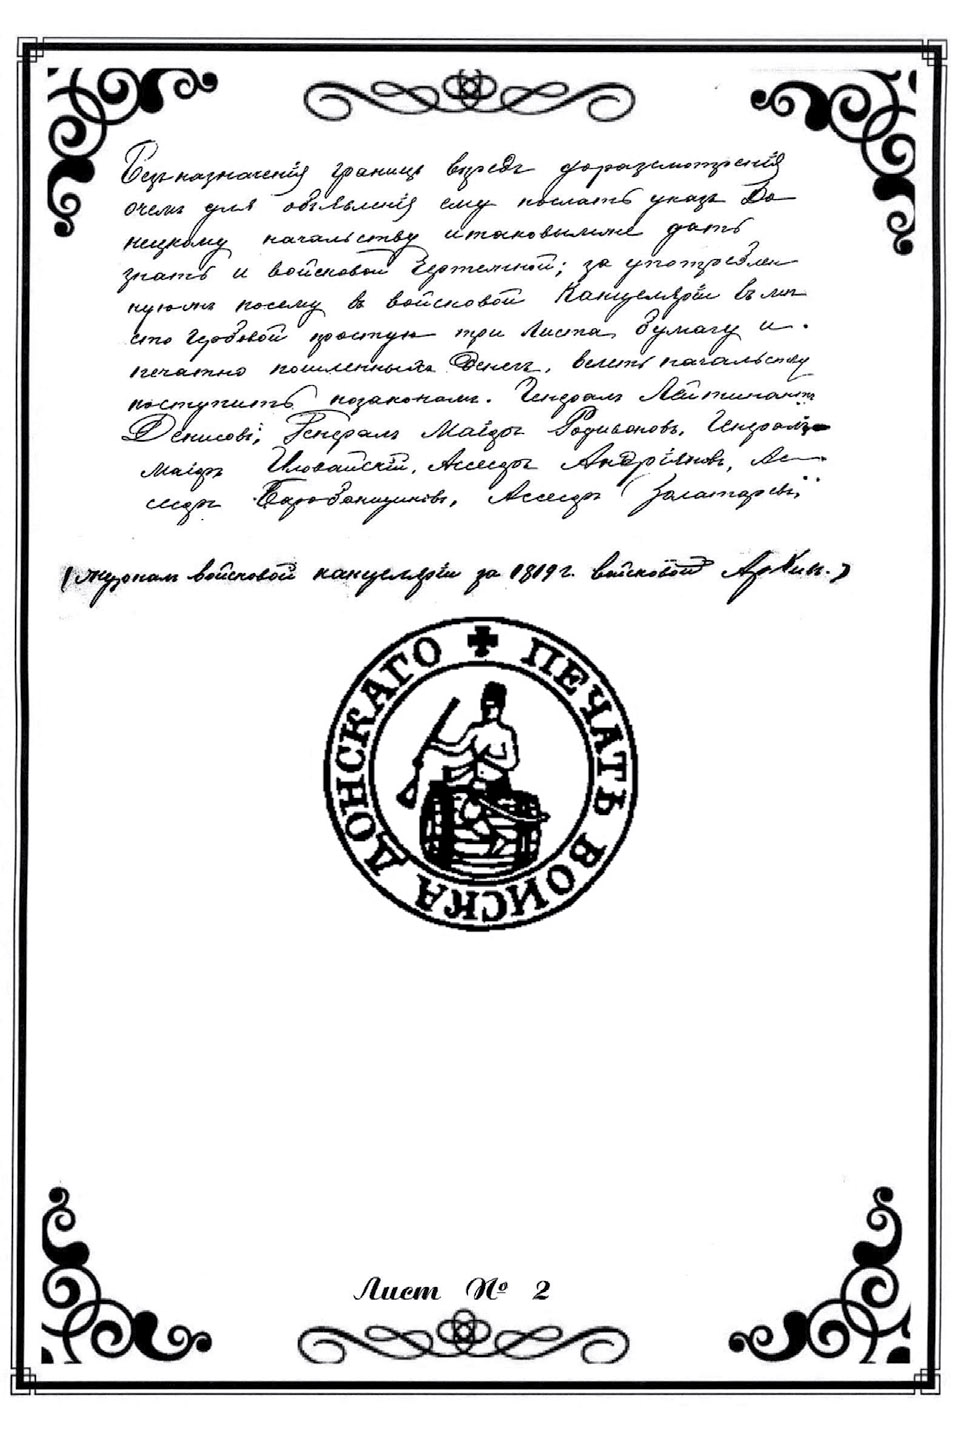 Безъ назначенія границъ впредь до разсмотренія
очемъ для объявленія ему послать указъ До
нецкому начальству и таковымже дать
знать и войсковой Чертежной; за употреблен
ную по сему въ войсковой Канцеляріи въ мѣ
сто гербовой простую три листа бумагу и
печатно пошленныхъ Денегъ, велеть начальству
поступить позаконамъ. Генералъ Лейтинантъ
Денисовъ, Генералъ Маіоръ Родивоновъ, Генералъ
Маіоръ Иловайскій, Асесоръ Андріяновъ, Ас
есоръ Барабанщиковъ, Асесоръ Залатаревъ
(Журналъ войсковой канцеляріи за 1819 г. войсковой Архивъ.)
ПЕЧАТЬ ВОЙСКА ДОНСКАГО
Лист № 2